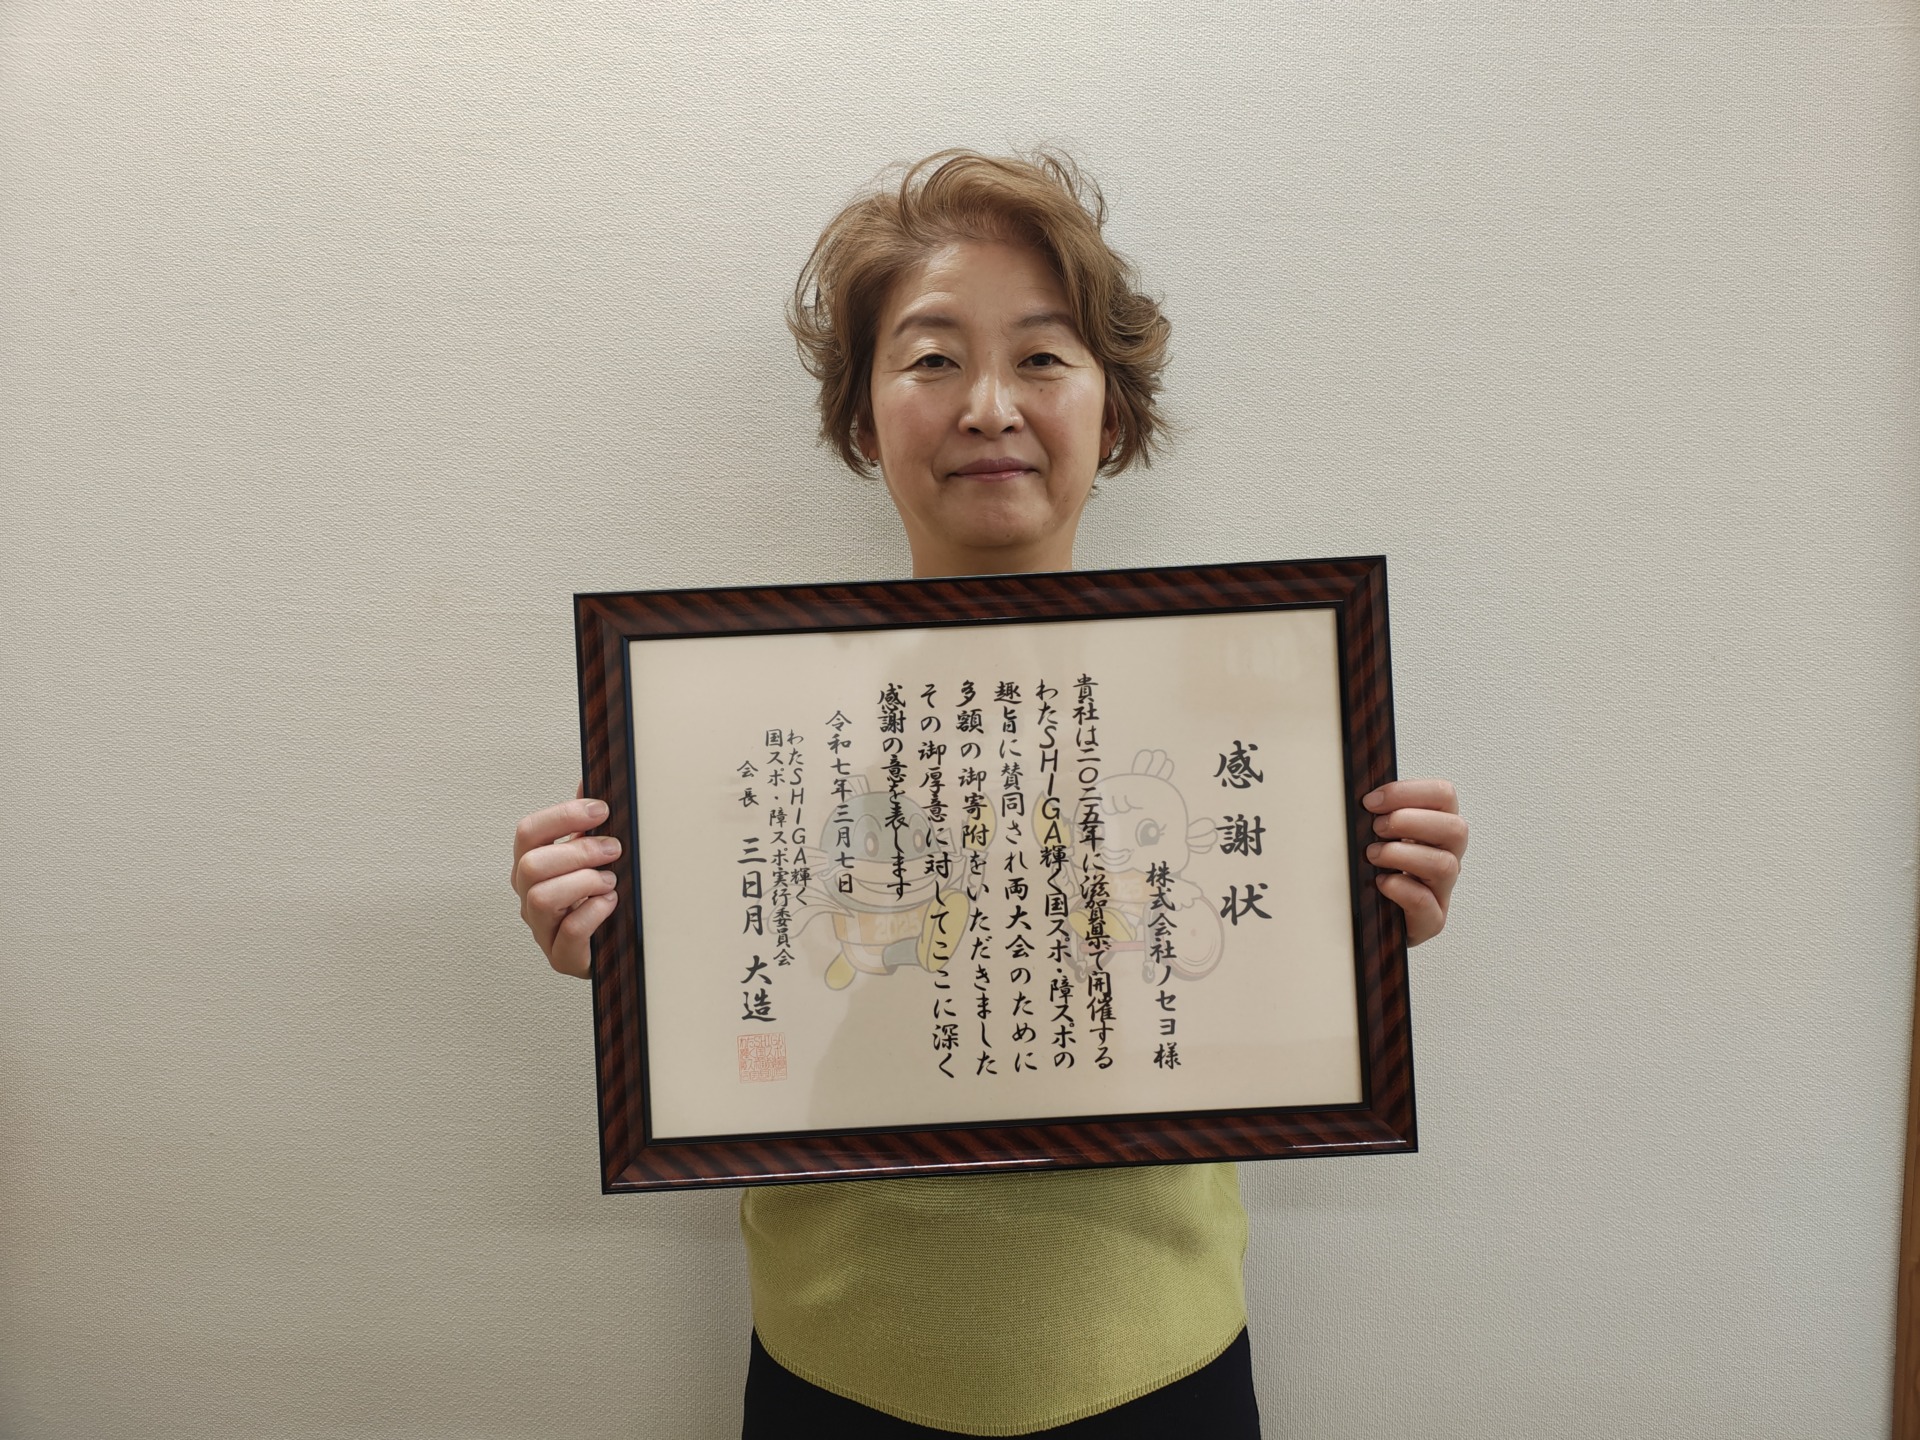 感謝状
株式会社ノセヨ様
貴社は二〇二五年に滋賀県で開催する
わたSHIGA輝く国スポ・障スポの
趣旨に賛同され両大会のために
多額の御寄附をいただきました
その御厚意に対してここに深く
感謝の意を表します
令和七年三月七日
わたSHIGA輝く
国スポ・障スポ実行委員会
会長 三日月 大造